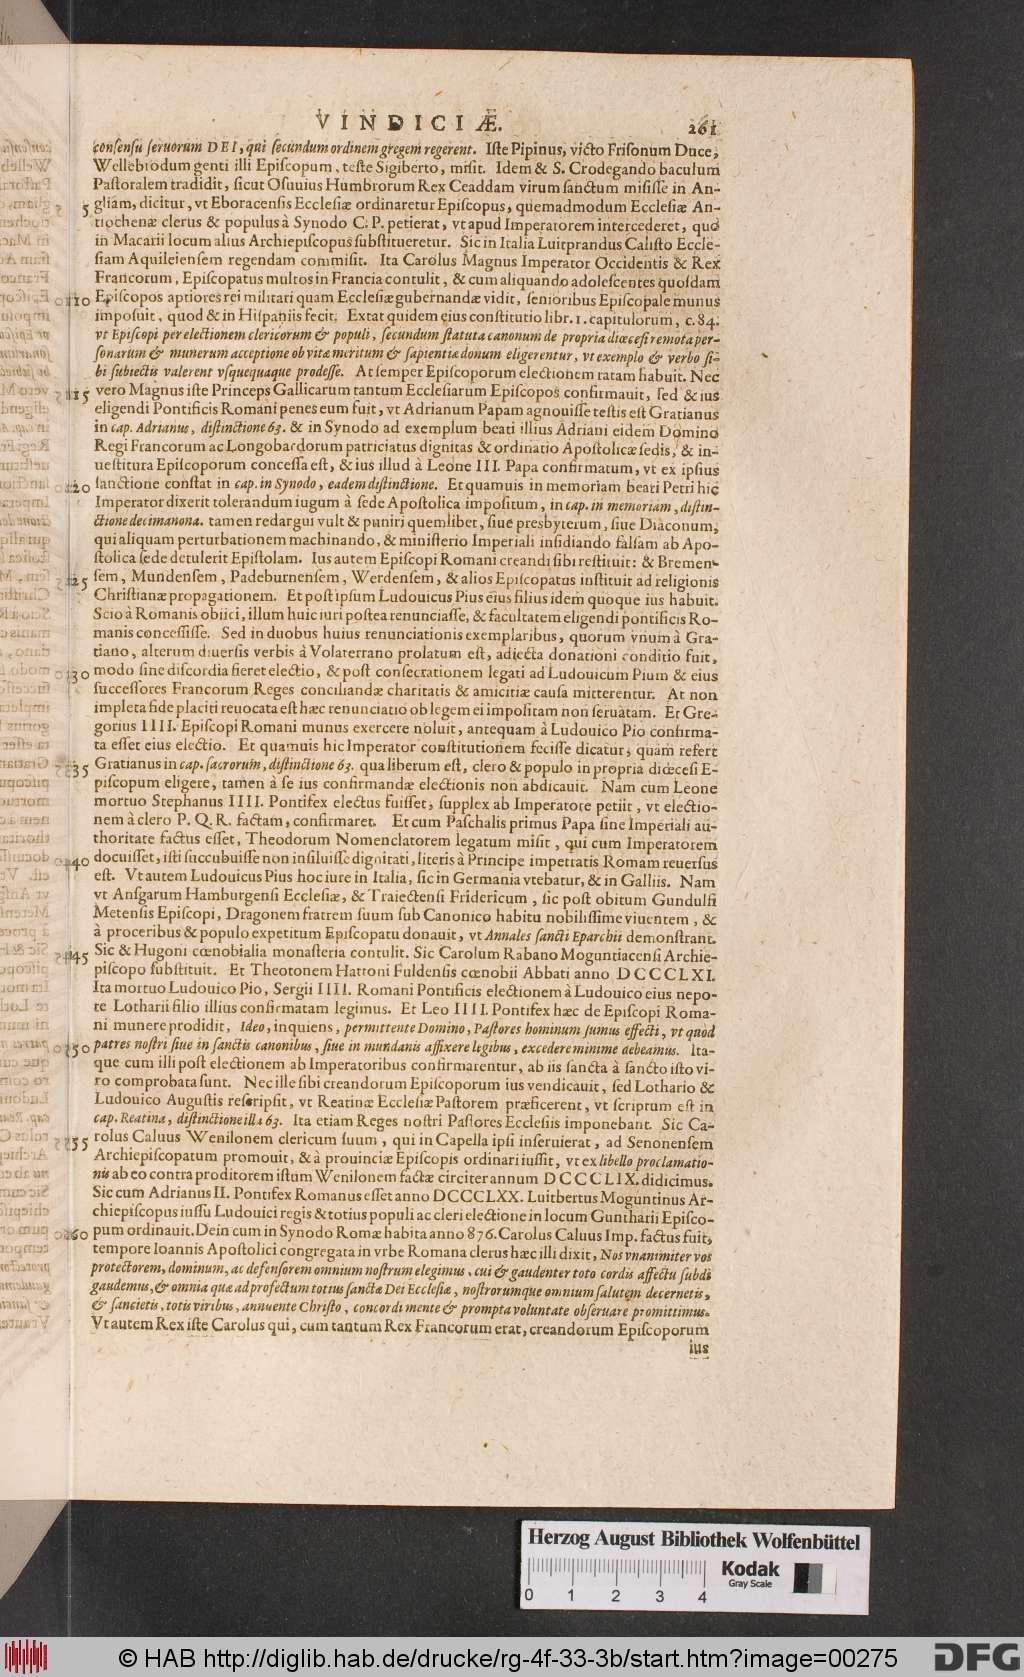 VINDICIÆ. 261
conſenſu ſeruorum DEI, qui ſecundum ordinem gregem regerent. Iſte Pipinus, victo Friſonum Duce,
Wellebrodum genti illi Epiſcopum, teſte Sigiberto, miſit. Idem & S. Crodegando baculum
Paſtoralem tradidit, ſicut Oſuuius Humbrorum Rex Ceaddam virum ſanctum miſiſſe in An-
5 gliam, dicitur, vt Eboracenſis Eccleſiæ ordinaretur Epiſcopus, quemadmodum Eccleſiæ An-
tiochenæ clerus & populus à Synodo C. P. petierat, vt apud Imperatorem intercederet, quo
in Macarii locum alius Archiepiſcopus ſubſtitueretur. Sic in Italia Luitprandus Caliſto Eccle-
ſiam Aquileienſem regendam commiſit. Ita Carolus Magnus Imperator Occidentis & Rex
Francorum, Epiſcopatus multos in Francia contulit, & cum aliquando adoleſcentes quoſdam
10 Epiſcopos aptiores rei militari quam Eccleſiæ gubernandæ vidit, ſenioribus Epiſcopale munus
impoſuit, quod & in Hiſpaniis fecit. Extat quidem eius conſtitutio libr. 1. capitulorum, c. 84.
vt Epiſcopi per electionem clericorum & populi, ſecundum ſtatuta canonum de propria diœceſi remota per-
ſonarum & munerum acceptione ob vitæ meritum & ſapientiæ donum eligerentur, vt exemplo & verbo ſi-
bi ſubiectis valerent vſquequaque prodeſſe. At ſemper Epiſcoporum electionem ratam habuit. Nec
15 vero Magnus iſte Princeps Gallicarum tantum Eccleſiarum Epiſcopos confirmauit, ſed & ius
eligendi Pontificis Romani penes eum fuit, vt Adrianum Papam agnouiſſe teſtis eſt Gratianus
in cap. Adrianus, diſtinctione 63. & in Synodo ad exemplum beati illius Adriani eidem Domino
Regi Francorum ac Longobardorum patriciatus dignitas & ordinatio Apoſtolicæ ſedis, & in-
ueſtitura Epiſcoporum conceſſa eſt, & ius illud à Leone III. Papa confirmatum, vt ex ipſius
20 ſanctione conſtat in cap. in Synodo, eadem diſtinctione. Et quamuis in memoriam beati Petri hic
Imperator dixerit tolerandum iugum à ſede Apoſtolica impoſitum, in cap. in memoriam, diſtin-
ctione decimanona. tamen redargui vult & puniri quemlibet, ſiue presbyterum, ſiue Diaconum,
qui aliquam perturbationem machinando, & miniſterio Imperiali inſidiando falſam ab Apo-
ſtolica ſede detulerit Epiſtolam. Ius autem Epiſcopi Romani creandi ſibi reſtituit: & Bremen-
25 ſem, Mundenſem, Padeburnenſem, Werdenſem, & alios Epiſcopatus inſtituit ad religionis
Chriſtianæ propagationem. Et poſt ipſum Ludouicus Pius eius filius idem quoque ius habuit.
Scio à Romanis obiici, illum huic iuri poſtea renunciaſſe, & facultatem eligendi pontificis Ro-
manis conceſſiſſe. Sed in duobus huius renunciationis exemplaribus, quorum vnum à Gra-
tiano, alterum diuerſis verbis à Volaterrano prolatum eſt, adiecta donationi conditio fuit,
30 modo ſine diſcordia fieret electio, & poſt conſecrationem legati ad Ludouicum Pium & eius
ſucceſſores Francorum Reges conciliandæ charitatis & amicitiæ cauſa mitterentur. At non
impleta fide placiti reuocata eſt hæc renunciatio ob legem ei impoſitam non ſeruatam. Et Gre-
gorius IIII. Epiſcopi Romani munus exercere noluit, antequam à Ludouico Pio confirma-
ta eſſet eius electio. Et quamuis hic Imperator conſtitutionem feciſſe dicatur, quam refert
35 Gratianus in cap. ſacrorum, diſtinctione 63. qua liberum eſt, clero & populo in propria diœceſi E-
piſcopum eligere, tamen à ſe ius confirmandæ electionis non abdicauit. Nam cum Leone
mortuo Stephanus IIII. Pontifex electus fuiſſet, ſupplex ab Imperatore petiit, vt electio-
nem à clero P. Q. R. factam, confirmaret. Et cum Paſchalis primus Papa ſine Imperiali au-
thoritate factus eſſet, Theodorum Nomenclatorem legatum miſit, qui cum Imperatorem
40 docuiſſet, iſti ſuccubuiſſe non inſiluiſſe dignitati, literis à Principe impetratis Romam reuerſus
eſt. Vt autem Ludouicus Pius hoc iure in Italia, ſic in Germania vtebatur, & in Galliis. Nam
vt Anſgarum Hamburgenſi Eccleſiæ, & Traiectenſi Fridericum, ſic poſt obitum Gundulfi
Metenſis Epiſcopi, Dragonem fratrem ſuum ſub Canonico habitu nobiliſſime viuentem, &
à proceribus & populo expetitum Epiſcopatu donauit, vt Annales ſancti Eparchii demonſtrant.
45 Sic & Hugoni cœnobialia monaſteria contulit. Sic Carolum Rabano Moguntiacenſi Archie-
piſcopo ſubſtituit. Et Theotonem Hattoni Fuldenſis cœnobii Abbati anno DCCCLXI.
Ita mortuo Ludouico Pio, Sergii IIII. Romani Pontificis electionem à Ludouico eius nepo-
te Lotharii filio illius confirmatam legimus. Et Leo IIII. Pontifex hæc de Epiſcopi Roma-
ni munere prodidit, Ideo, inquiens, permittente Domino, Paſtores hominum ſumus effecti, vt quod
50 patres noſtri ſiue in ſanctis canonibus, ſiue in mundanis affixere legibus, excedere minime debeamus. Ita-
que cum illi poſt electionem ab Imperatoribus confirmarentur, ab iis ſancta à ſancto iſto vi-
ro comprobata ſunt. Nec ille ſibi creandorum Epiſcoporum ius vendicauit, ſed Lothario &
Ludouico Auguſtis reſcripſit, vt Reatinæ Eccleſiæ Paſtorem præficerent, vt ſcriptum eſt in
cap. Reatina, diſtinctione illa 63. Ita etiam Reges noſtri Paſtores Eccleſiis imponebant. Sic Ca-
55 rolus Caluus Wenilonem clericum ſuum, qui in Capella ipſi inſeruierat, ad Senonenſem
Archiepiſcopatum promouit, & à prouinciæ Epiſcopis ordinari iuſſit, vt ex libello proclamatio-
nis ab eo contra proditorem iſtum Wenilonem factæ circiter annum DCCCLIX. didicimus.
Sic cum Adrianus II. Pontifex Romanus eſſet anno DCCCLXX. Luitbertus Moguntinus Ar-
chiepiſcopus iuſſu Ludouici regis & totius populi ac cleri electione in locum Guntharii Epiſco-
60 pum ordinauit. Dein cum in Synodo Romæ habita anno 876. Carolus Caluus Imp. factus fuit,
tempore Ioannis Apoſtolici congregata in vrbe Romana clerus hæc illi dixit, Nos vnanimiter vos
protectorem, dominum, ac defenſorem omnium noſtrum elegimus, cui & gaudenter toto cordis affectu ſubdi
gaudemus, & omnia quæ ad profectum totius ſanctæ Dei Eccleſiæ, noſtrorumque omnium ſalutem decernetis,
& ſancietis, totis viribus, annuente Chriſto, concordi mente & prompta voluntate obſeruare promittimus.
Vt autem Rex iſte Carolus qui, cum tantum Rex Francorum erat, creandorum Epiſcoporum
ius
Herzog August Bibliothek Wolfenbüttel
0 1 2 3 4
Kodak
Gray Scale
© HAB http://diglib.hab.de/drucke/rg-4f-33-3b/start.htm?image=00275
DFG